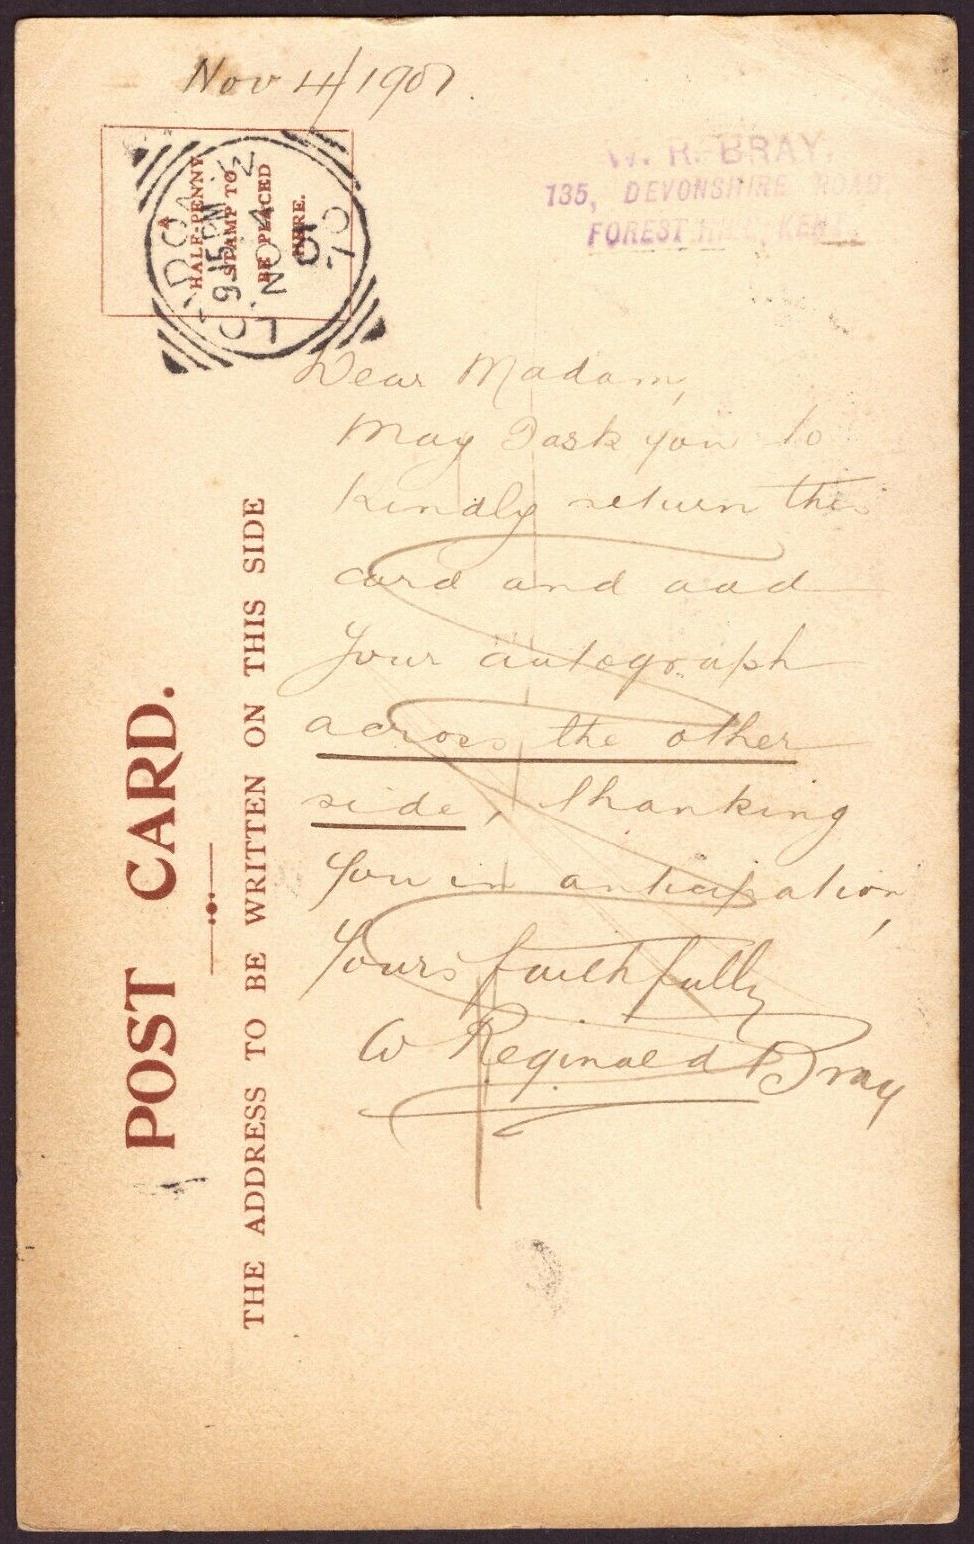 Nov 4/1901.
A
HALF-PENNY
STAMP TO
BE PLACED
HERE.
LONDON. W
9.15PM
NO 4
01
70
W. R. BRAY,
135, DEVONSHIRE ROAD
FOREST HILL, KENT.
Dear Madam,
May I ask you to
kindly return this
card and add
your autograph
across the other
side, thanking
you in anticipation,
Yours faithfully
W Reginald Bray
POST CARD.
THE ADDRESS TO BE WRITTEN ON THIS SIDE